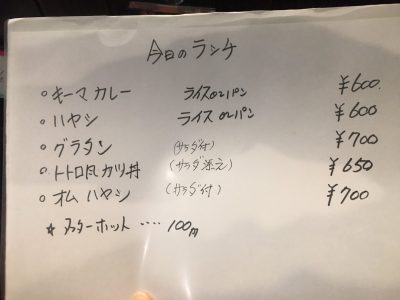 今日のランチ
○キーマカレー ライスorパン ¥600.
○ハヤシ ライスorパン ¥600
○グラタン (サラダ付) ¥700
○トトロ風カツ丼 (サラダ添え) ¥650
○オムハヤシ (サラダ付) ¥700
☆アフターホット ‥‥ 100円